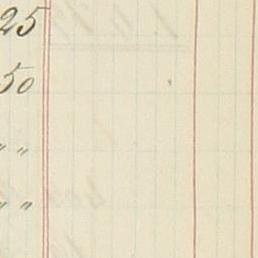 25
50
" "
" "